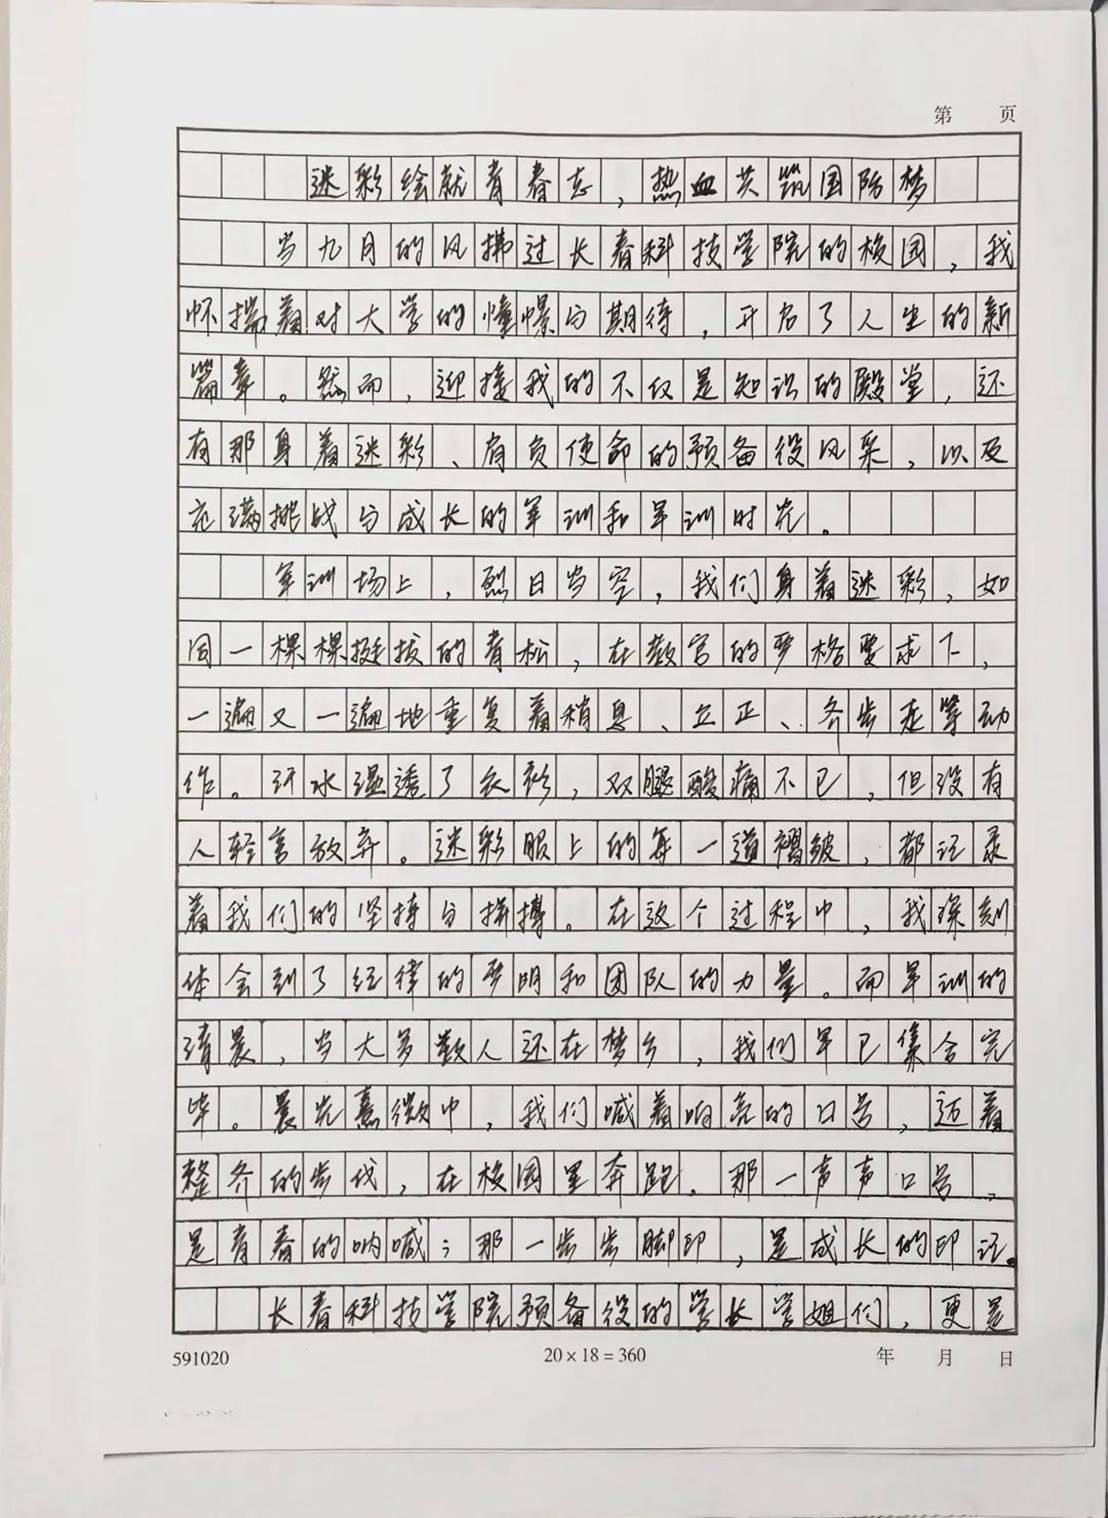 第 页
迷彩绘就青春志，热血共筑国防梦
当九月的风拂过长春科技学院的校园，我
怀揣着对大学的憧憬与期待，开启了人生的新
篇章。然而，迎接我的不仅是知识的殿堂，还
有那身着迷彩、肩负使命的预备役风采，以及
充满挑战与成长的军训和军训时光。
军训场上，烈日当空，我们身着迷彩，如
同一棵棵挺拔的青松，在教官的严格要求下，
一遍又一遍地重复着稍息、立正、齐步走等动
作。汗水湿透了衣衫，双腿酸痛不已，但没有
人轻言放弃。迷彩服上的每一道褶皱，都记录
着我们的坚持与拼搏。在这个过程中，我深刻
体会到了纪律的严明和团队的力量。而军训的
清晨，当大多数人还在梦乡，我们早已集合完
毕。晨光熹微中，我们喊着响亮的口号，迈着
整齐的步伐，在校园里奔跑。那一声声口号，
是青春的呐喊；那一步步脚印，是成长的印记。
长春科技学院预备役的学长学姐们，更是
591020 20×18=360 年 月 日